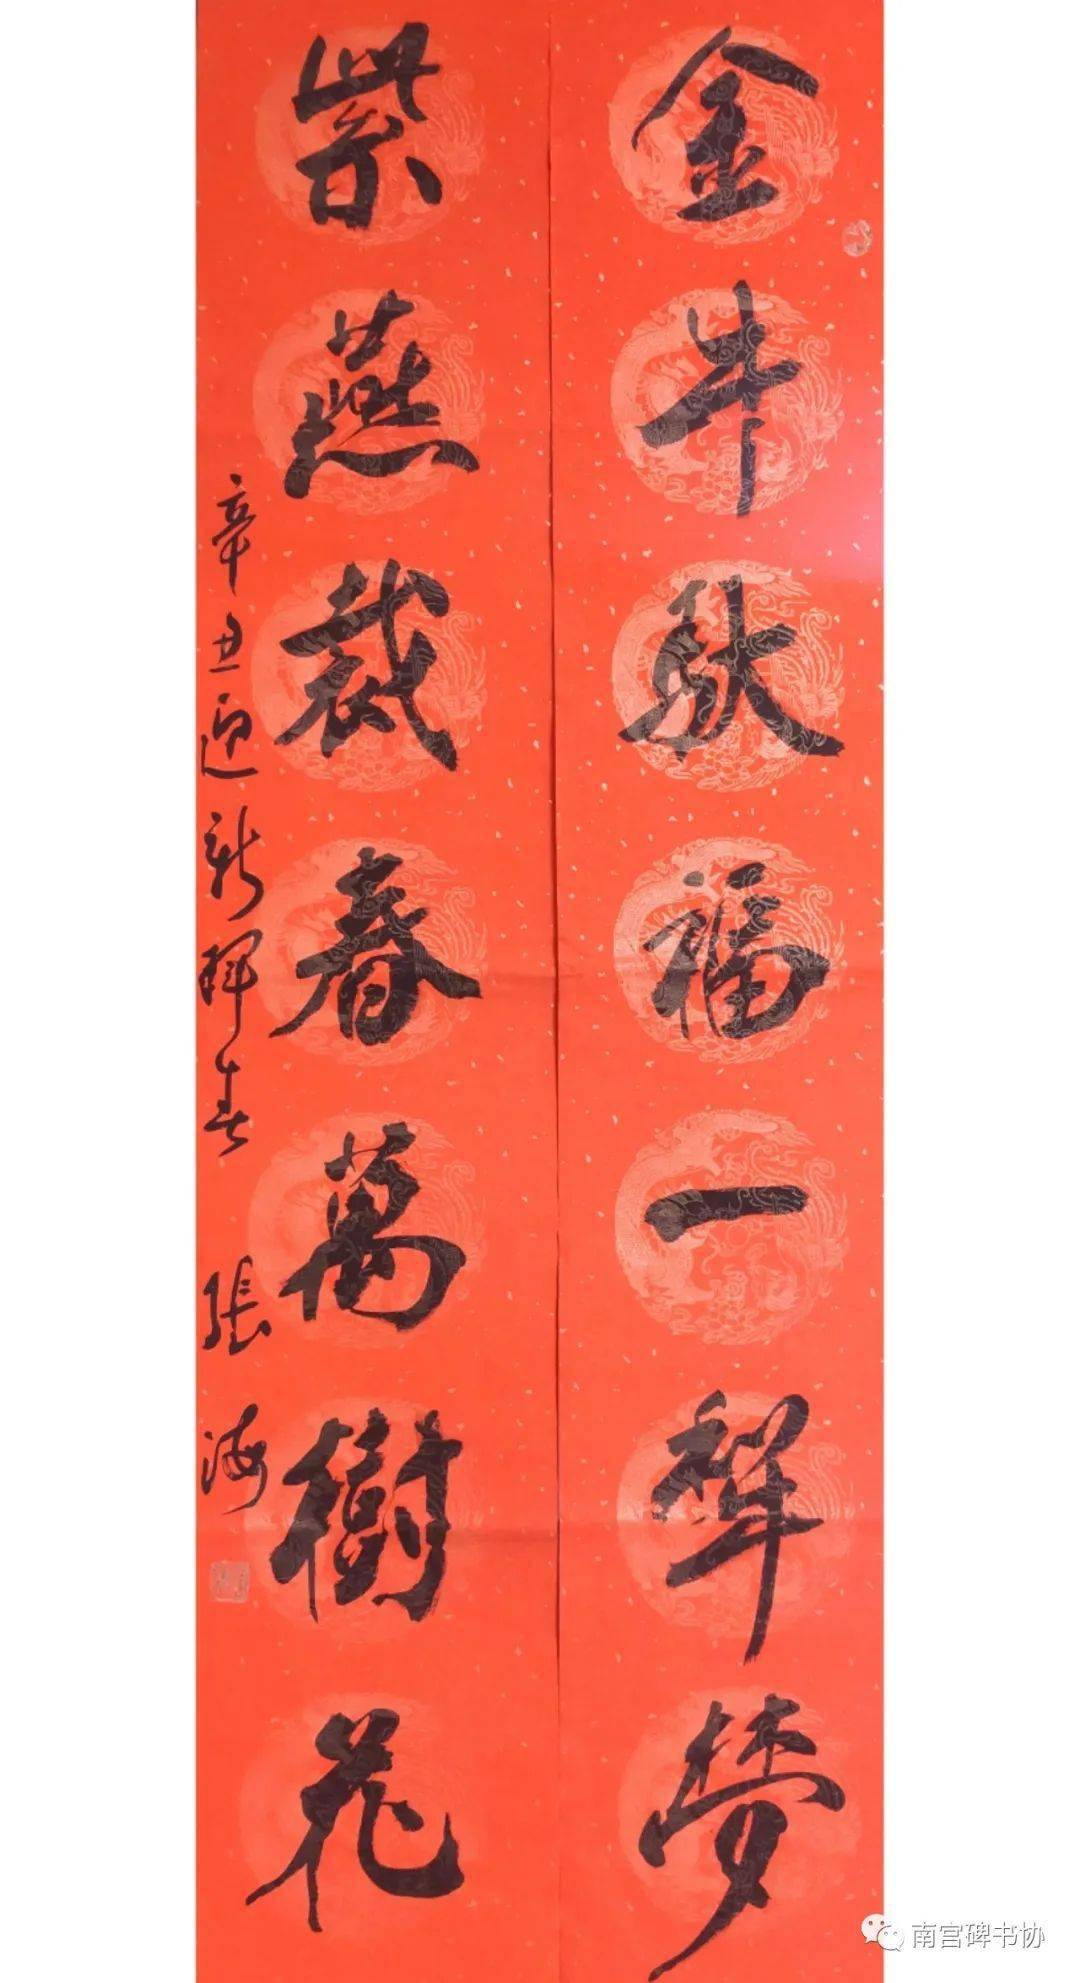 金牛馱福一犁梦
紫燕裁春萬樹花
辛丑迎新揮春 張海
南宫碑书协